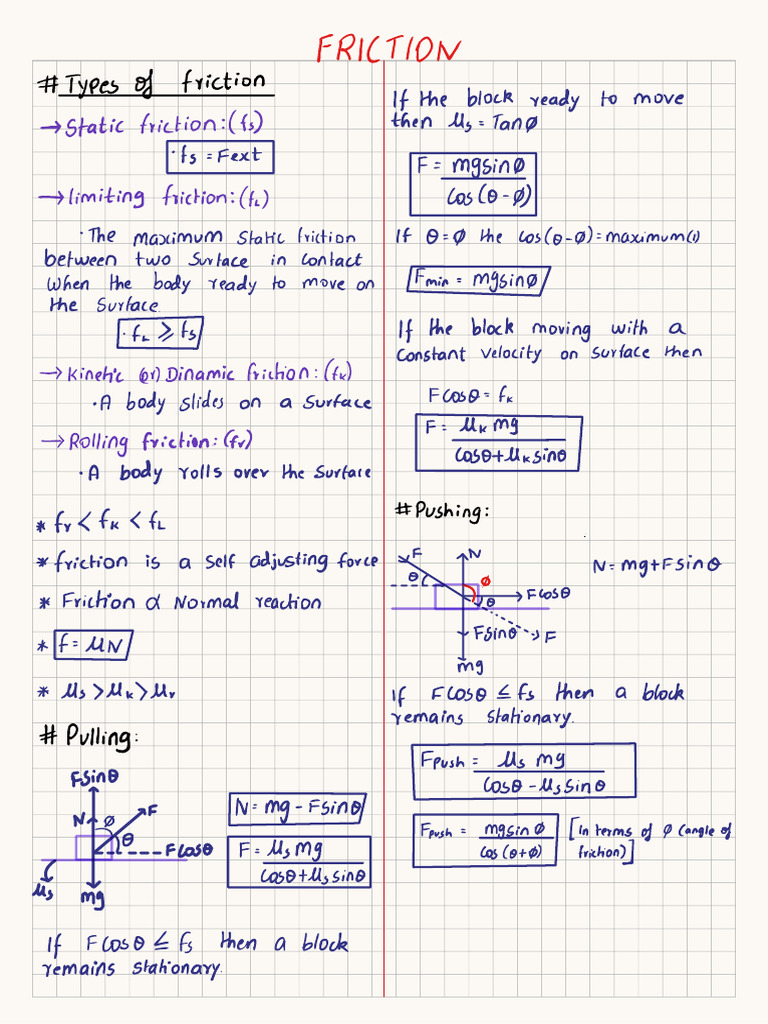 FRICTION
# Types of friction
→ Static friction:(fs)
· fs = Fext
→ limiting friction:(fL)
· The maximum static friction
between two surface in contact
when the body ready to move on
the surface
· fL ≥ fs
→ Kinetic (or) Dinamic friction:(fK)
· A body slides on a surface
→ Rolling friction:(fr)
· A body rolls over the surface
* fr < fK < fL
* friction is a self adjusting force
* Friction α Normal reaction
* f = μN
* μs > μK > μr
# Pulling:
Fsinθ
N
ϕ
F
θ
Fcosθ
μs
mg
N = mg - Fsinθ
F = μs mg / cosθ + μs sinθ
If Fcosθ ≤ fs then a block
remains stationary.
If the block ready to move
then μs = Tanϕ
F = mgsinϕ / cos(θ-ϕ)
If θ=ϕ the cos(θ-ϕ)=maximum(1)
Fmin = mgsinϕ
If the block moving with a
constant velocity on surface then
Fcosθ = fK
F = μK mg / cosθ + μK sinθ
# Pushing:
F
N
θ
ϕ
Fcosθ
θ
Fsinθ
F
mg
N = mg + Fsinθ
If Fcosθ ≤ fs then a block
remains stationary.
Fpush = μs mg / cosθ - μs sinθ
Fpush = mgsinϕ / cos(θ+ϕ)
[In terms of ϕ (angle of
friction)]